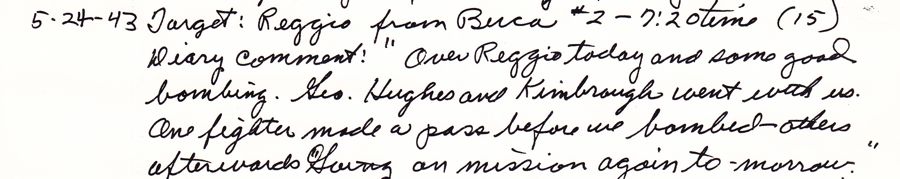 5-24-43 Target: Reggio from Berca #2 - 7:20 time (15)
Diary Comment: "Over Reggio today and some good
bombing. Geo. Hughes and Kimbrough went with us.
One fighter made a pass before we bombed - others
afterwards. Going on mission again to-morrow."